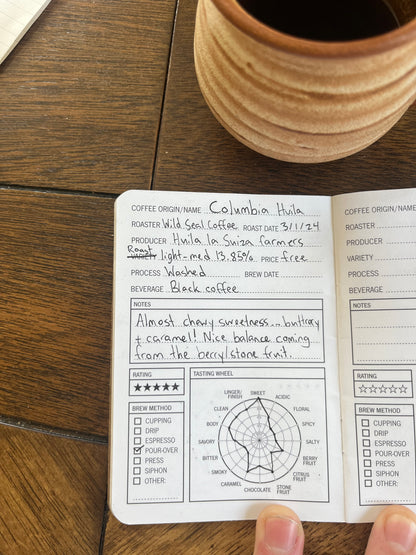 COFFEE ORIGIN/NAME Columbia Huila
ROASTER Wild Seal Coffee ROAST DATE 3/1/24
PRODUCER Huila la Suiza farmers
Roast
VARIETY light-med 13.85% PRICE free
PROCESS Washed BREW DATE
BEVERAGE Black coffee
NOTES
Almost chewy sweetness... buttrary
+ caramel! Nice balance coming
from the berry/stone fruit.
RATING
★★★★★
BREW METHOD
CUPPING
DRIP
ESPRESSO
POUR-OVER
PRESS
SIPHON
OTHER:
TASTING WHEEL
SWEET
ACIDIC
FLORAL
SPICY
SALTY
BERRY FRUIT
CITRUS FRUIT
STONE FRUIT
CHOCOLATE
CARAMEL
SMOKY
BITTER
SAVORY
BODY
CLEAN
LINGER/FINISH
COFFEE ORIGIN/NAME
ROASTER
PRODUCER
VARIETY
PROCESS
BEVERAGE
NOTES
RATING
☆☆☆☆☆
BREW METHOD
CUPPING
DRIP
ESPRESSO
POUR-OVER
PRESS
SIPHON
OTHER: